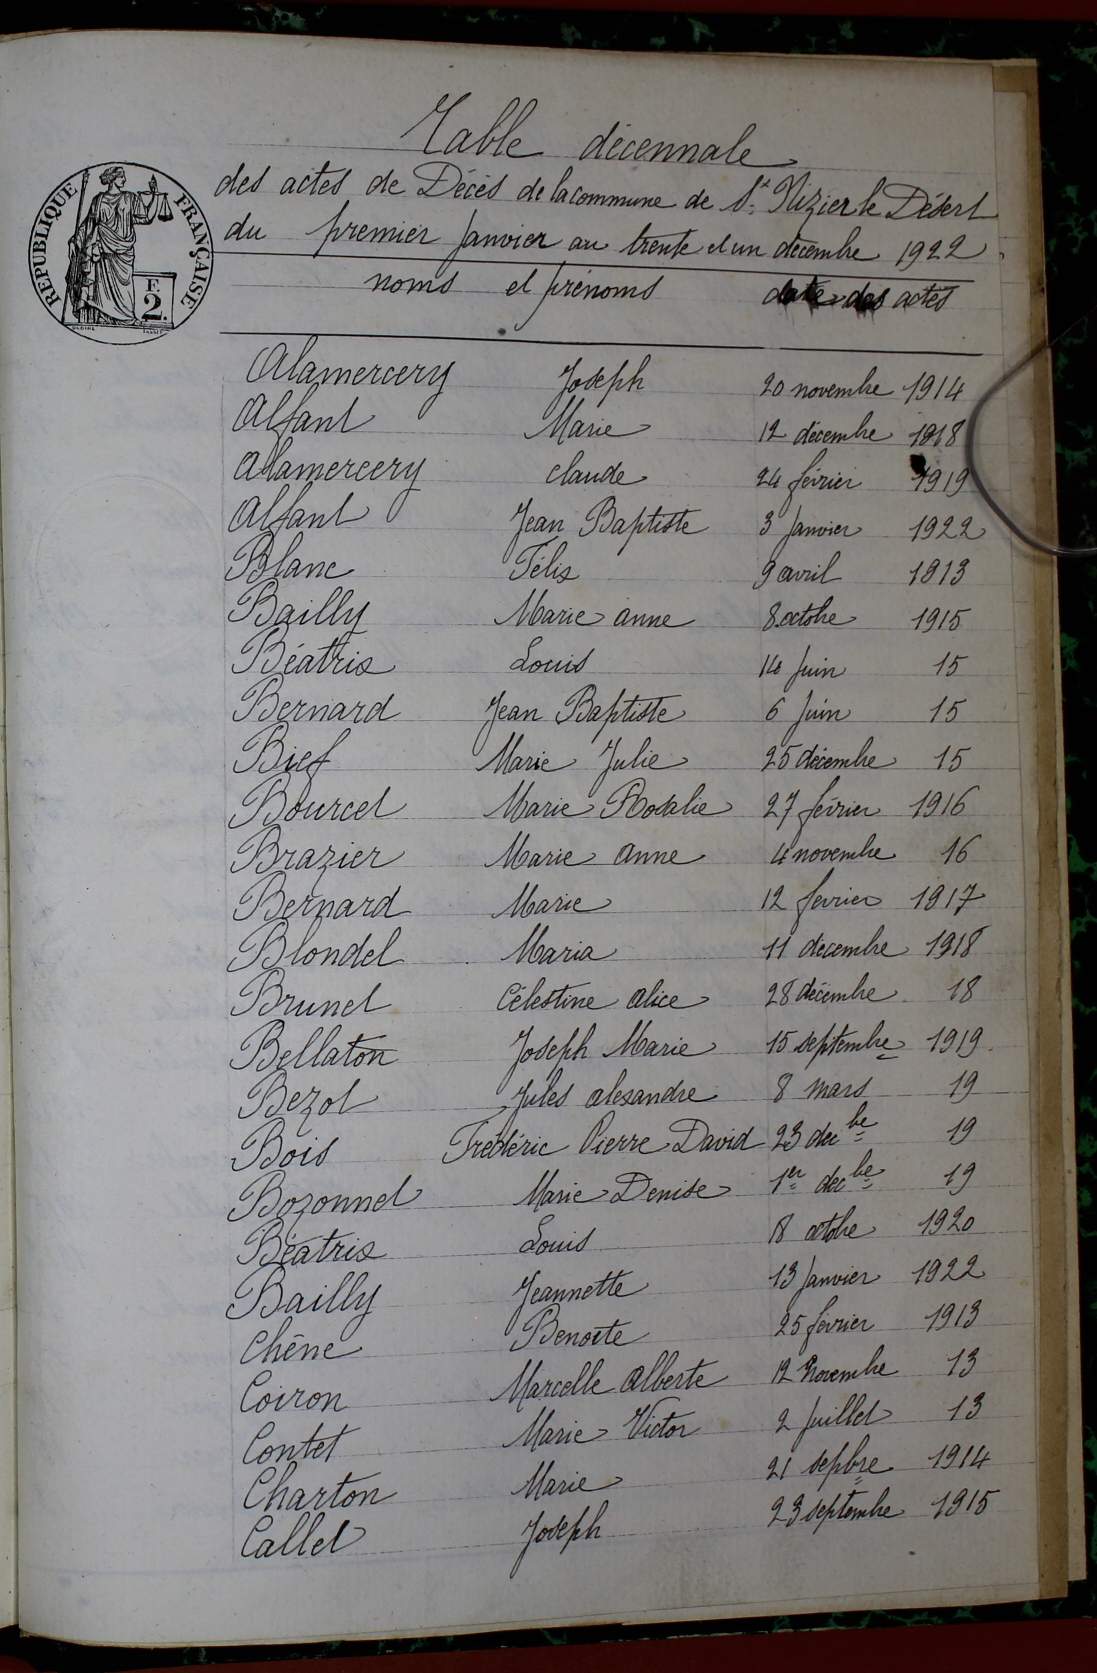 Table décennale
des actes de Décès de la commune de St Nizier le Désert
du premier Janvier au trente et un décembre 1922
RÉPUBLIQUE FRANÇAISE
F.
2.
noms et prénoms date des actes
Alamercery Joseph 20 novembre 1914
Alfant Marie 12 décembre 1918
Alamercery Claude 24 février 1919
Alfant Jean Baptiste 3 Janvier 1922
Blanc Félix 9 avril 1913
Bailly Marie anne 8 octobre 1915
Béatrix Louis 14 Juin 15
Bernard Jean Baptiste 6 Juin 15
Bief Marie Julie 25 décembre 15
Bourcet Marie Rosalie 27 février 1916
Brazier Marie Anne 4 novembre 16
Bernard Marie 12 février 1917
Blondel Maria 11 decembre 1918
Brunet Célestine Alice 28 décembre 18
Bellaton Joseph Marie 15 septembre 1919
Bezot Jules alexandre 8 mars 19
Bois Frédéric Pierre David 23 decbe 19
Bozonnet Marie Denise 1er decbe 19
Béatrix Louis 8 octobre 1920
Bailly Jeannette 13 Janvier 1922
Chêne Benoite 25 février 1913
Coiron Marcelle Alberte 12 Novembre 13
Contet Marie Victor 2 Juillet 13
Charton Marie 21 sepbre 1914
Callet Joseph 23 septembre 1915